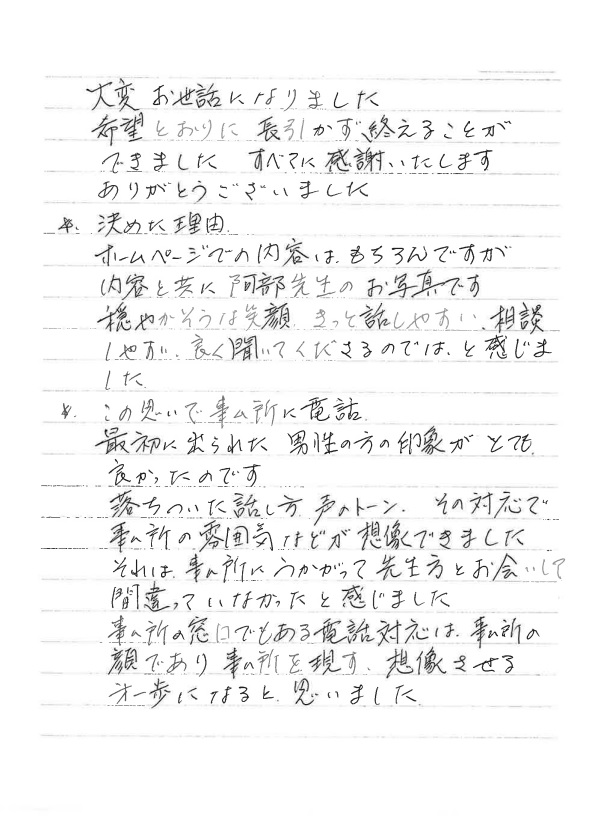 大変 お世話になりました
希望 とおりに 長引かず、終えることが
できました すべてに 感謝いたします
ありがとうございました
☆. 決めた理由
ホームページでの内容は、もちろんですが
内容と共に 阿部先生の お写真です
穏やかそうな笑顔、きっと話しやすい、相談
しやすい、良く聞いてくださるのでは、と感じま
した
☆. この思いで事ム所に電話
最初に出られた 男性の方の印象が とても、
良かったのです
落ちついた話し方 声のトーン、その対応で
事ム所の雰囲気などが想像できました
それは、事ム所にうかがって先生方とお会いして
間違っていなかったと感じました
事ム所の窓口でもある電話対応は、事ム所の
顔であり 事ム所を現す、想像させる
才一歩になると、思いました